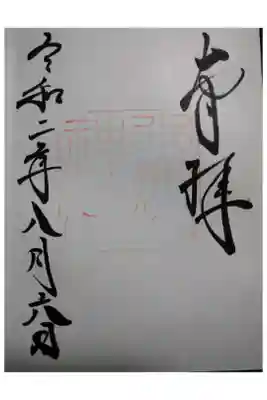 奉拝
令和二年八月六日